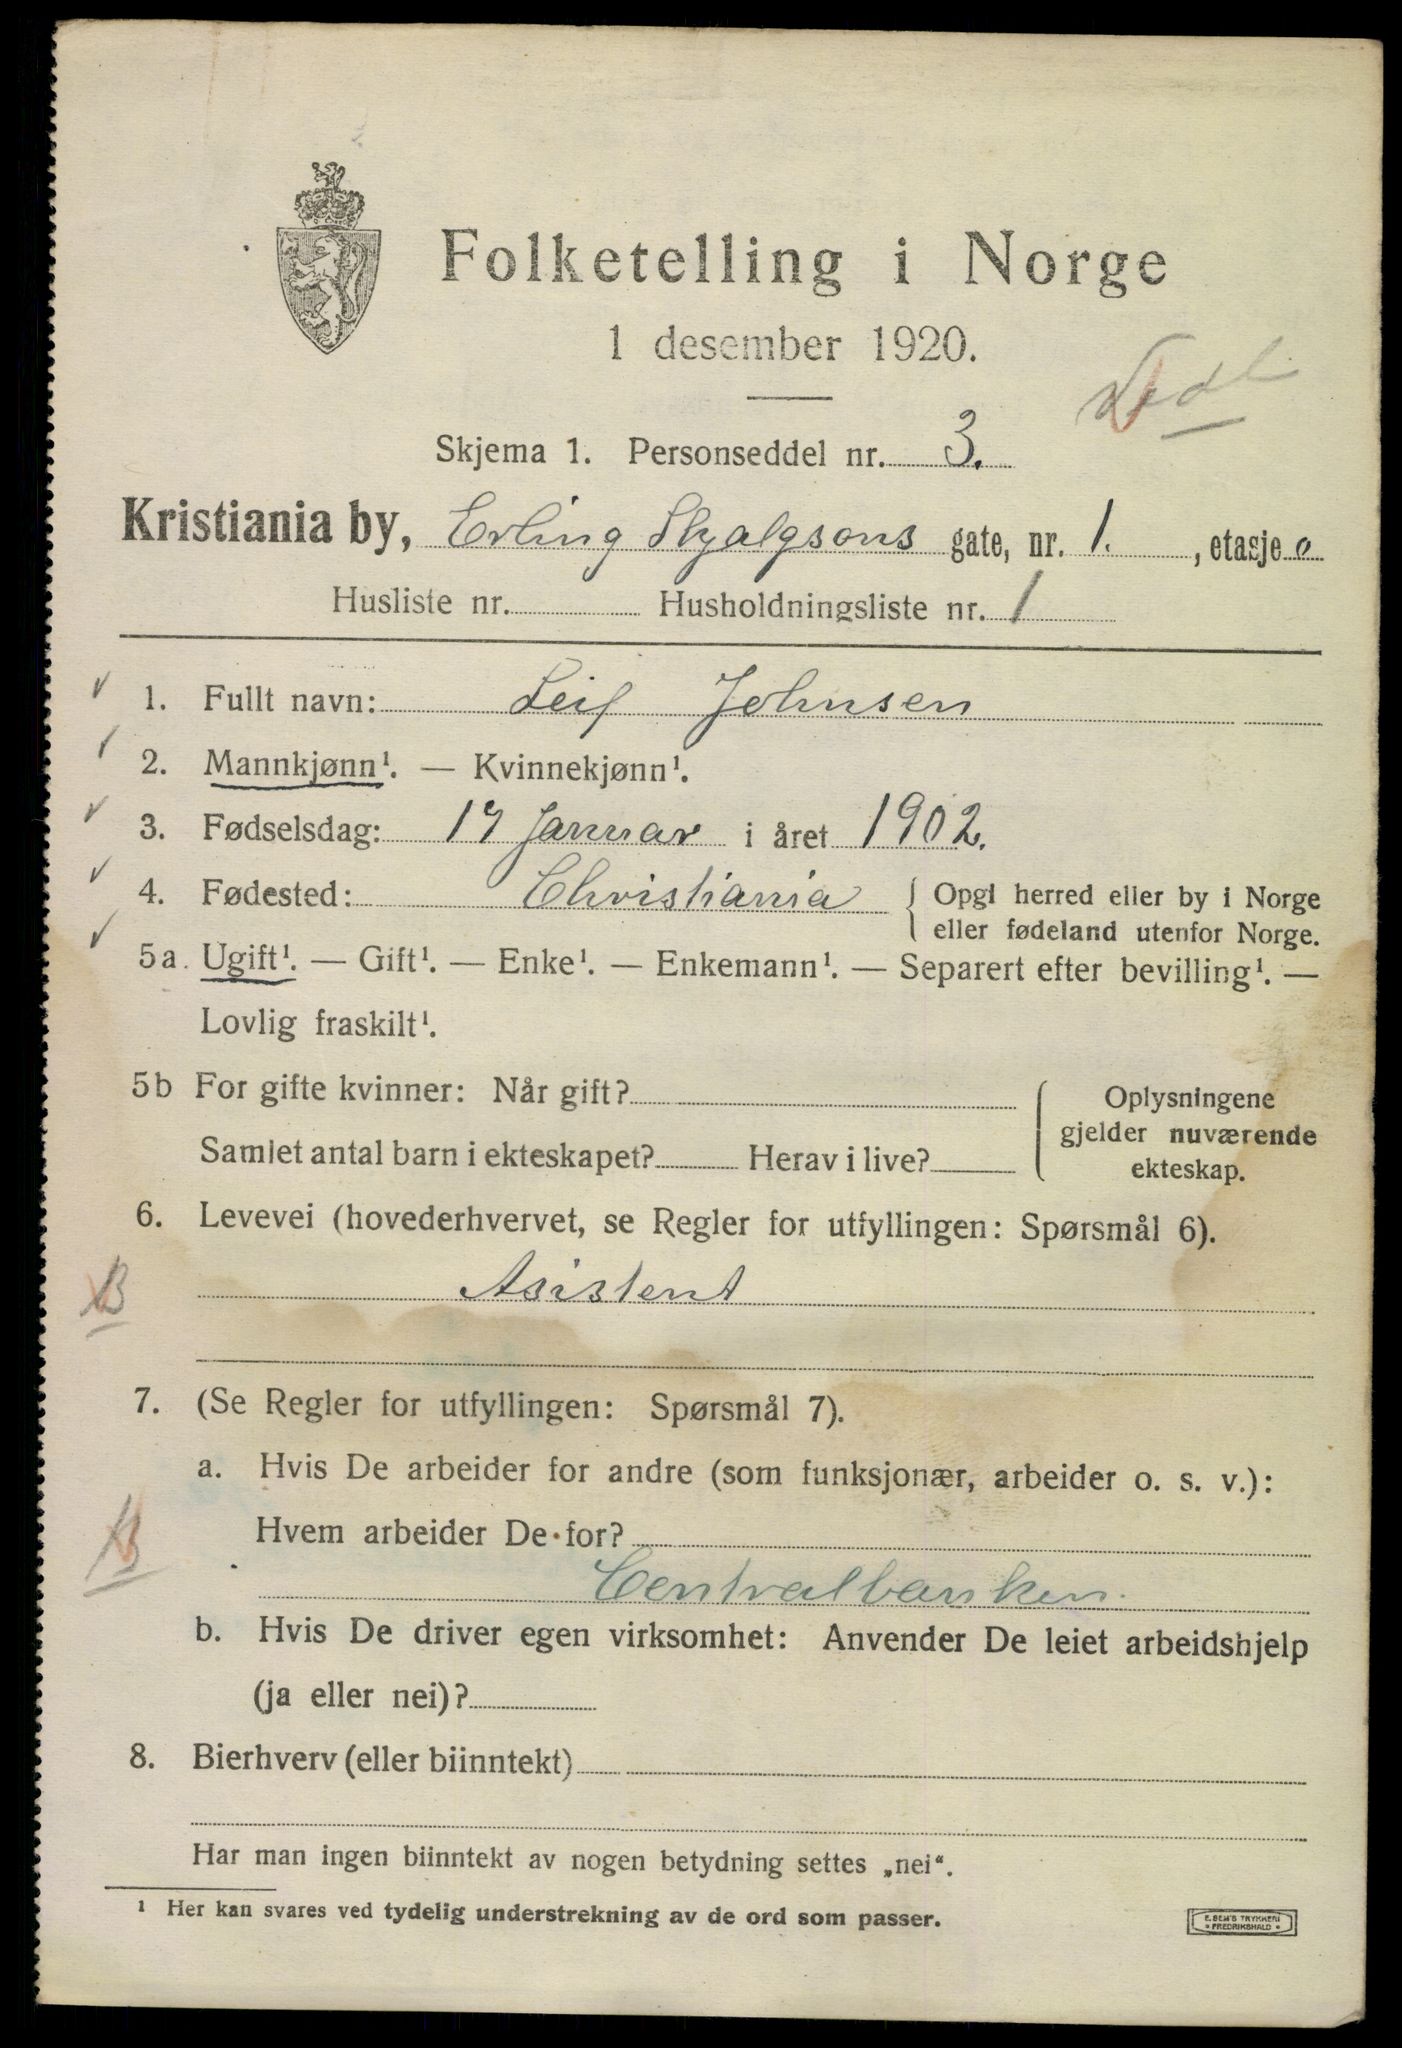 Folketelling i Norge
1 desember 1920.
Skjema 1. Personseddel nr. 3.
Kristiania by, Erling Skjalgsons gate, nr. 1., etasje 0
Husliste nr. Husholdningsliste nr. 1
1. Fullt navn: Leif Johnsen
2. Mannkjønn¹. — Kvinnekjønn¹.
3. Fødselsdag: 17 Januar i året 1902.
4. Fødested: Christiania { Opgl herred eller by i Norge
eller fødeland utenfor Norge.
5a. Ugift¹. — Gift¹. — Enke¹. — Enkemann¹. — Separert efter bevilling¹. —
Lovlig fraskilt¹.
5b For gifte kvinner: Når gift? Oplysningene
gjelder nuværende
Samlet antal barn i ekteskapet? Herav i live? ekteskap.
6. Levevei (hovederhvervet, se Regler for utfyllingen: Spørsmål 6).
B Asistent
7. (Se Regler for utfyllingen: Spørsmål 7).
a. Hvis De arbeider for andre (som funksjonær, arbeider o. s. v.):
Hvem arbeider De for?
Centralbanken.
b. Hvis De driver egen virksomhet: Anvender De leiet arbeidshjelp
(ja eller nei)?
8. Bierhverv (eller biinntekt)
Har man ingen biinntekt av nogen betydning settes „nei“.
¹ Her kan svares ved tydelig understrekning av de ord som passer.
E. SEM'S TRYKKERI
FREDRIKSHALD